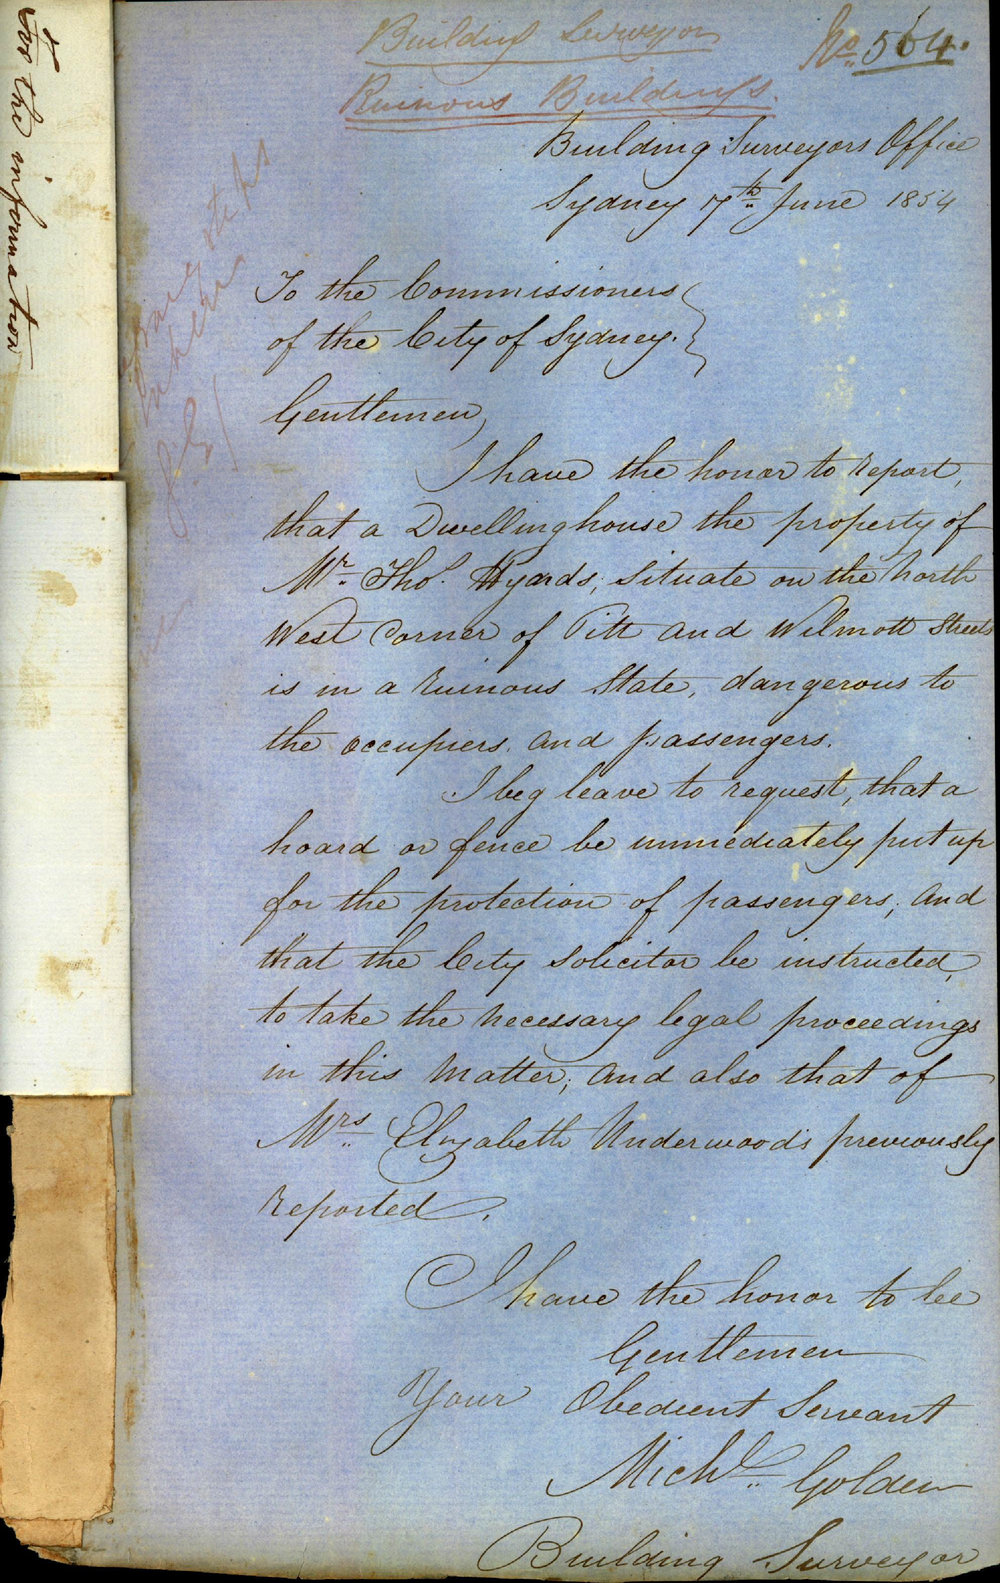 & for the information
Building Surveyor
No. 564.
Ruinous Buildings.
Building Surveyors Office
Sydney 7th June 1854
To the Commissioners
of the City of Sydney.
Gentlemen,
I have the honor to report,
that a Dwellinghouse the property of
Mr. Thos. Hyards, situate on the North
West Corner of Pitt and Wilmott Streets
is in a ruinous State, dangerous to
the occupiers, and passengers.
I beg leave to request, that a
hoard or fence be immediately put up
for the protection of passengers; and
that the City Solicitor be instructed,
to take the necessary legal proceedings
in this matter; and also that of
Mrs Elizabeth Underwood's previously
reported.
I have the honor to be
Gentlemen
Your Obedient Servant
Michl. Golden
Building Surveyor